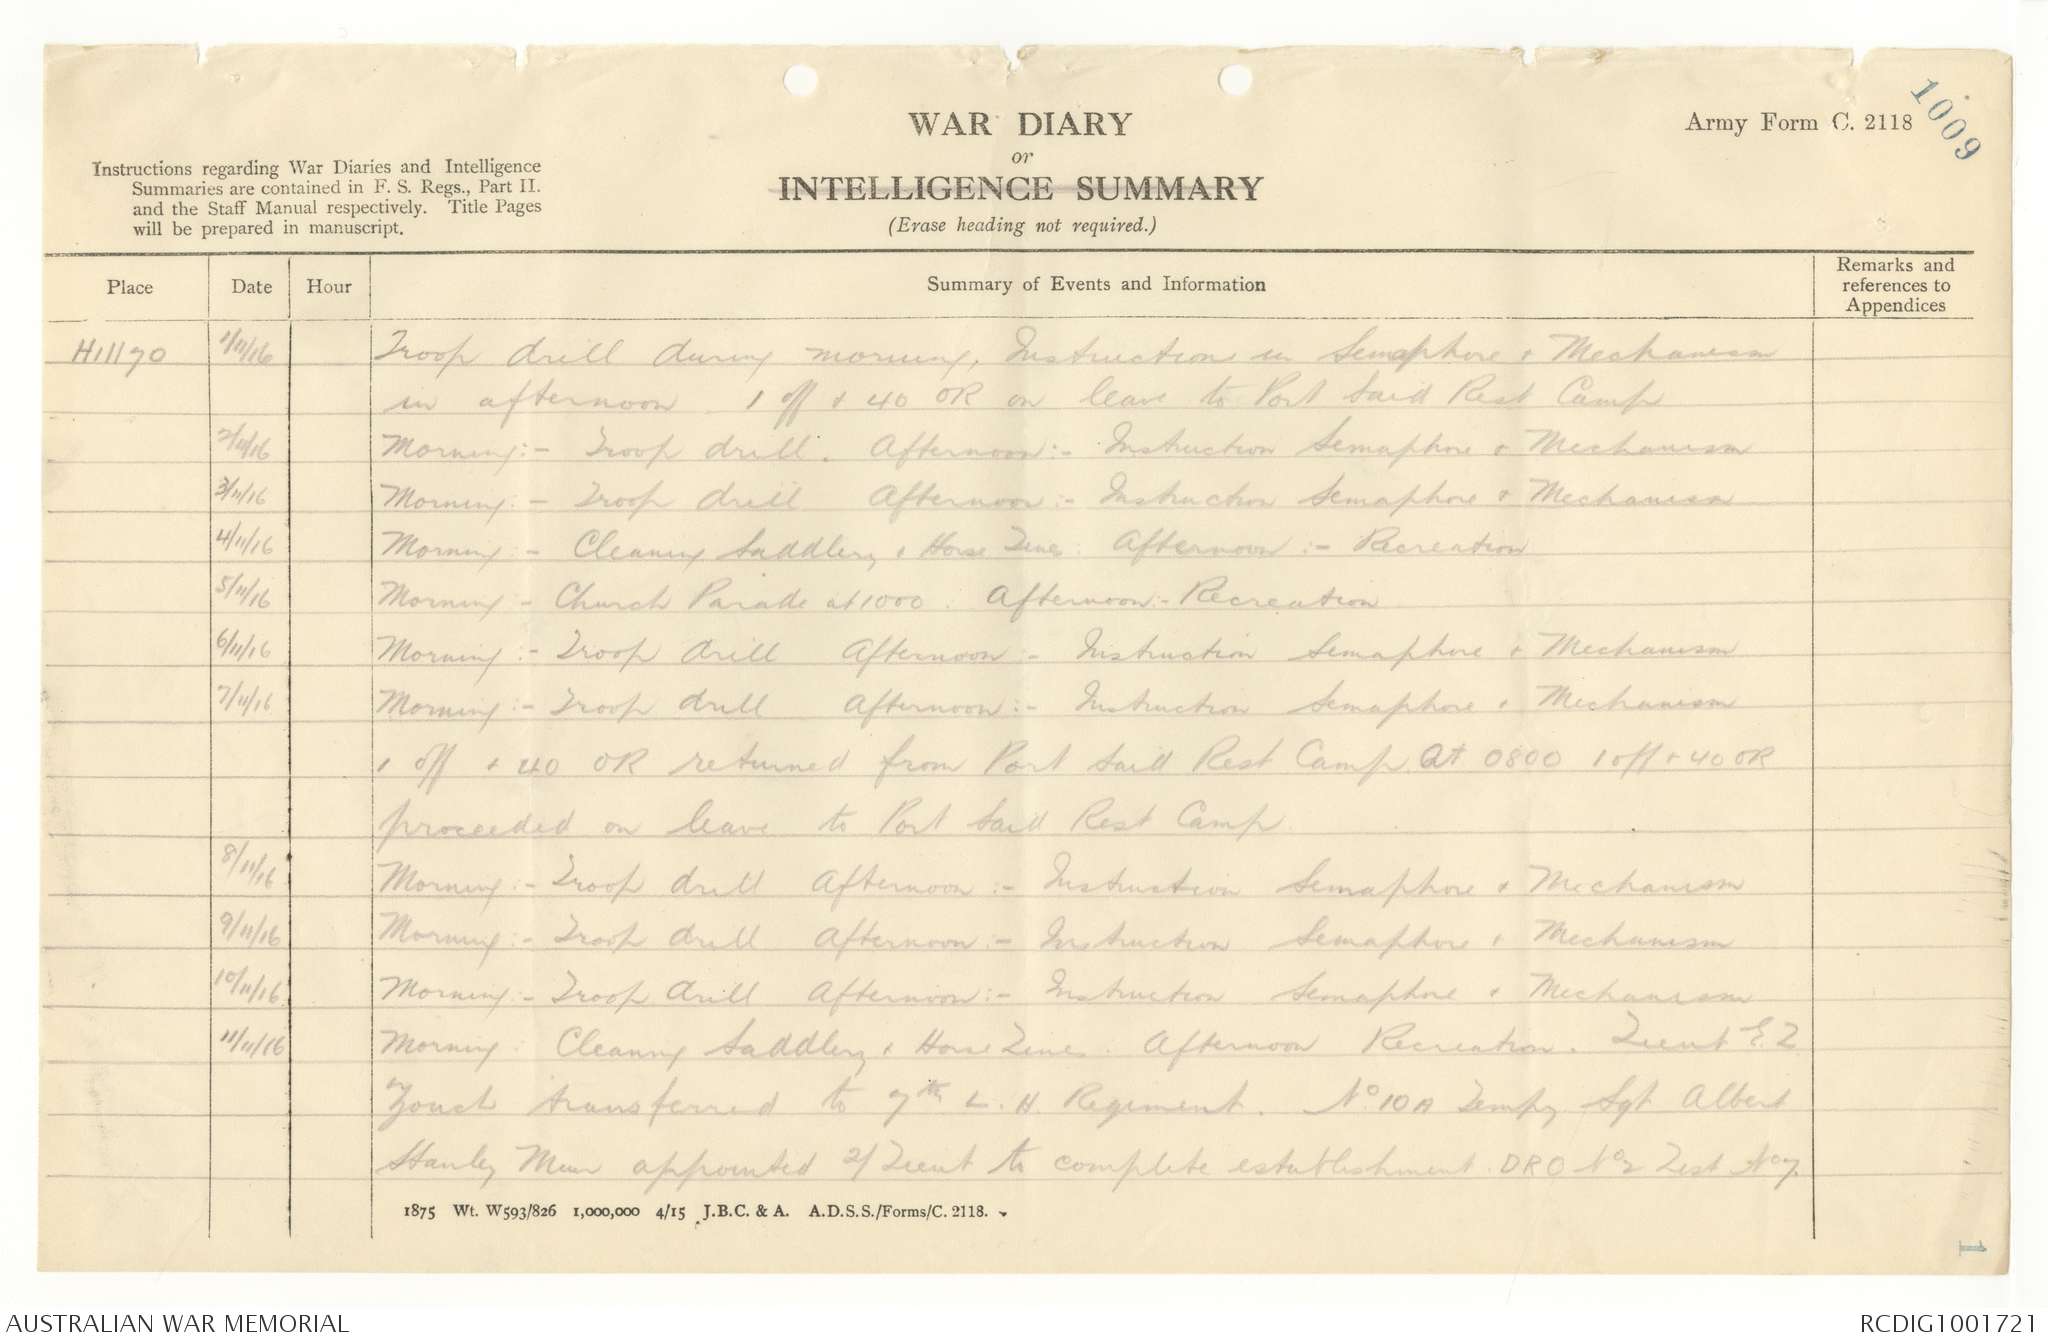 1009
WAR DIARY
or
INTELLIGENCE SUMMARY
(Erase heading not required.)
Army Form C. 2118
Instructions regarding War Diaries and Intelligence
Summaries are contained in F. S. Regs., Part II.
and the Staff Manual respectively. Title Pages
will be prepared in manuscript.
Place Date Hour Summary of Events and Information Remarks and references to Appendices
Hill 70 1/11/16 Troop drill during morning. Instruction in Semaphore & Mechanism
in afternoon. 1 off & 40 OR on leave to Port Said Rest Camp
2/11/16 Morning:- Troop drill. Afternoon:- Instruction Semaphore & Mechanism
3/11/16 Morning:- Troop drill Afternoon:- Instruction Semaphore & Mechanism
4/11/16 Morning:- Cleaning Saddlery & Horse Lines. Afternoon:- Recreation
5/11/16 Morning - Church Parade at 1000. Afternoon:- Recreation
6/11/16 Morning:- Troop drill Afternoon:- Instruction Semaphore & Mechanism
7/11/16 Morning:- Troop drill Afternoon:- Instruction Semaphore & Mechanism
1 off & 40 OR returned from Port Said Rest Camp. At 0800 1 off & 40 OR
proceeded on leave to Port Said Rest Camp
8/11/16 Morning:- Troop drill Afternoon:- Instruction Semaphore & Mechanism
9/11/16 Morning:- Troop drill Afternoon:- Instruction Semaphore & Mechanism
10/11/16 Morning:- Troop drill Afternoon:- Instruction Semaphore & Mechanism
11/11/16 Morning: Cleaning Saddlery & Horse Lines. Afternoon Recreation. Lieut E. L
Zouch transferred to 7th L. H. Regiment. No 10A Tempy Sgt Albert
Stanley appointed 2/Lieut to complete establishment. DRO No 2 List No 7.
1875 Wt. W593/826 1,000,000 4/15 J.B.C. & A. A.D.S.S./Forms/C. 2118.
1
AUSTRALIAN WAR MEMORIAL
RCDIG1001721